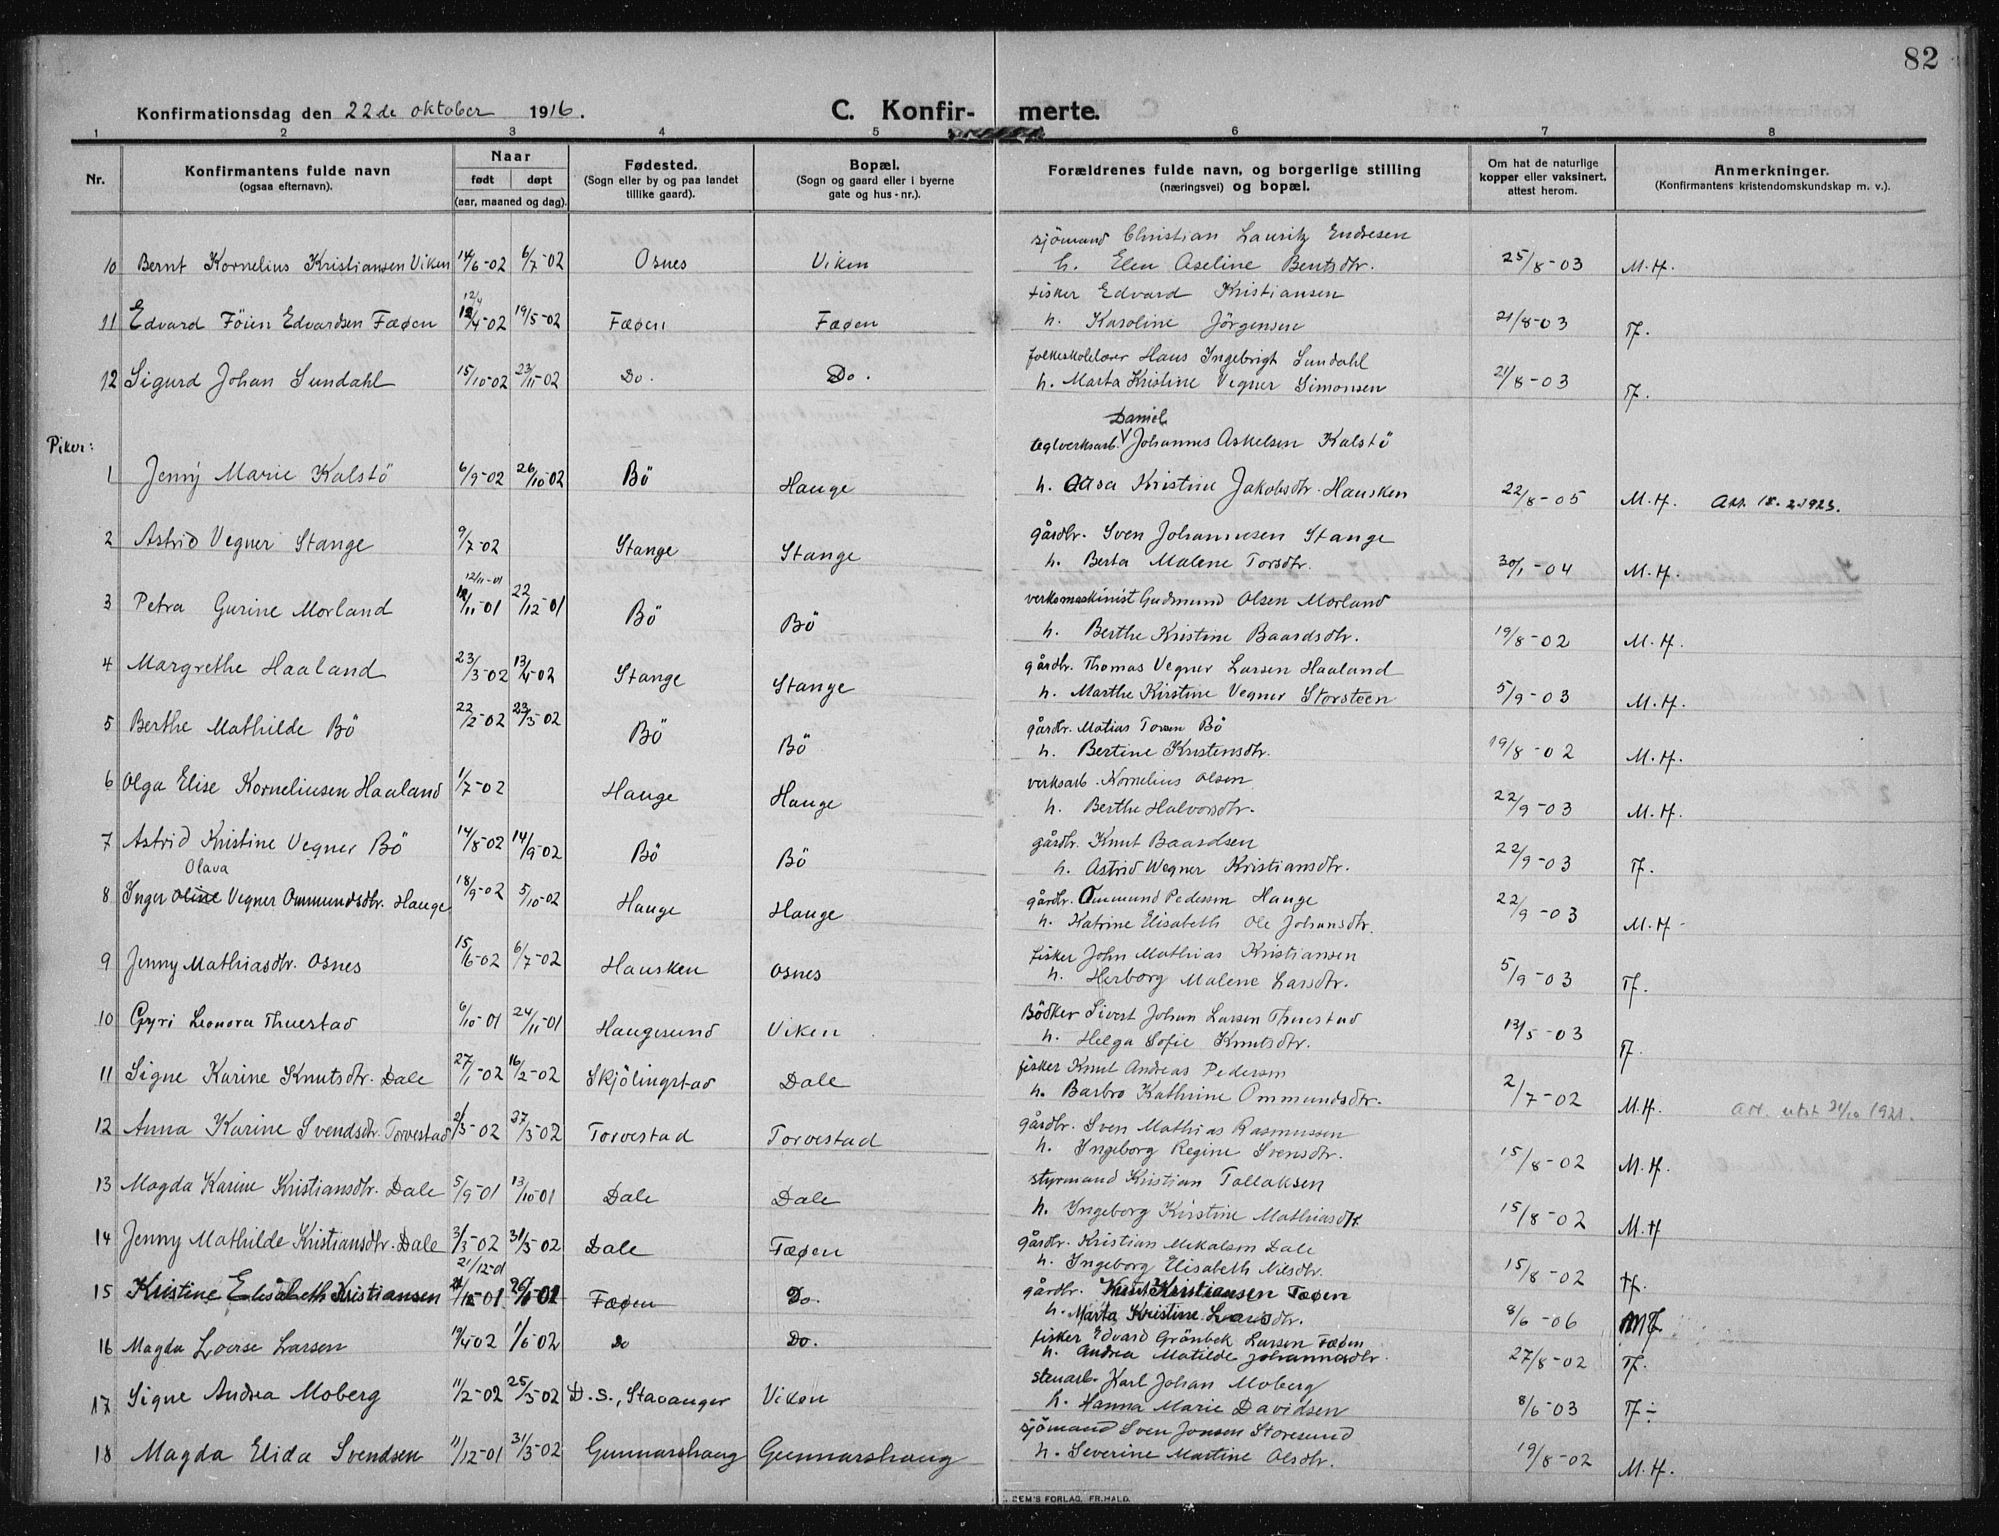 82
Konfirmationsdag den 22de oktober 1916. C. Konfirmerte.
1 2 3 4 5 6 7 8
Nr. Konfirmantens fulde navn (ogsaa efternavn). Naar født døpt (aar, maaned og dag). Fødested. (Sogn eller by og paa landet tillike gaard). Bopæl. (Sogn og gaard eller i byerne gate og hus-nr.). Forældrenes fulde navn, og borgerlige stilling (næringsvei) og bopæl. Om hat de naturlige kopper eller vaksinert, attest herom. Anmerkninger. (Konfirmantens kristendomskundskap m. v.).
sjömand Christian Lauritz Endresen
10 Bernt Kornelius Kristiansen Viken 14/6-02 6/7-02 Osnes Viken h. Elen Aseline Bentsdtr. 25/8-03 M.H.
12/4 fisker Edvard Kristiansen
11 Edvard Föien Edvardsen Fæøen 12/4-02 19/5-02 Fæøen Fæøen h. Karoline Jörgensen 21/8-03 Tf.
folkeskolelærer Hans Ingebrigt Sundahl
12 Sigurd Johan Sundahl 15/10-02 23/11-02 Do. Do. h. Marta Kristine Vegner Simonsen 21/8-03 Tf.
Daniel
Piker: teglverksarb. Johannes Askelsen Kalstö
1 Jenny Marie Kalstö 6/9-02 26/10-02 Bö Hauge h. Aasa Kristine Jakobsdtr. Hausken 22/8-05 M.H. Att. 18.2.1923.
gårdbr. Sven Johannesen Stange
2 Astrid Vegner Stange 9/7-02 Stange Stange h. Berta Malene Torsdtr. 30/1-04 M.H.
12/11-01 verksmaskinist Gudmund Olsen Morland
3 Petra Gurine Morland 12/11-01 22/12-01 Bö Bö h. Berthe Kristine Baardsdtr. 19/8-02 M.H.
gårdbr. Thomas Vegner Larsen Haaland
4 Margrethe Haaland 23/3-02 13/4-02 Stange Stange h. Marthe Kirstine Vegner Storsteen 5/9-03 M.H.
gårdbr. Matias Torsen Bö
5 Berthe Mathilde Bö 22/2-02 23/3-02 Bö Bö h. Bertine Kristensdtr. 19/8-02 M.H.
verksarb. Kornelius Olsen
6 Olga Elise Korneliusen Haaland 1/7-02 Hauge Hauge h. Berthe Halvorsdtr. 22/9-03 M.H.
gårdbr. Knut Baardsen
7 Astrid Kristine Vegner Bö 14/8-02 14/9-02 Bö Bö h. Astrid Wegner Kristiansdtr. 22/9-03 Tf.
Olava gårdbr. Ommund Pedersen Hauge
8 Inger Oline Vegner Ommundsdtr. Hauge 18/9-02 5/10-02 Hauge Hauge h. Katrine Elisabeth Ole Johansdtr. 22/9-03 M.H.
fisker John Mathias Kristiansen
9 Jenny Mathiasdtr. Osnes 15/6-02 6/7-02 Hausken Osnes h. Herborg Malene Larsdtr. 5/9-03 Tf.
Bödker Sivert Johan Larsen Thuestad
10 Gyri Leonora Thuestad 6/10-01 24/11-01 Haugesund Viken h. Helga Sofie Knutsdtr. 13/5-03 Tf.
fisker Knut Andreas Pedersen
11 Signe Karine Knutsdtr. Dale 27/1-02 16/2-02 Skjölingstad Dale h. Barbro Kathrine Ommundsdtr. 2/7-02 M.H. Att. utst. 21/10 1921.
gårdbr. Sven Mathias Rasmussen
12 Anna Karine Svendsdtr. Torvestad 2/3-02 27/3-02 Torvestad Torvestad h. Ingeborg Regine Svensdtr. 15/8-02 M.H.
styrmand Kristian Tollaksen
13 Magda Karine Kristiansdtr. Dale 5/9-01 13/10-01 Dale Dale h. Ingeborg Kirstine Mathiasdtr. 15/8-02 M.H
gårdbr. Kristian Mikalsen Dale
14 Jenny Mathilde Kristiansdtr. Dale 3/3-02 31/3-02 Dale Fæøen h. Ingeborg Elisabeth Nilsdtr. 15/8-02 Tf.
21/12-01 gårdbr. Knut Kristiansen Fæøen
15 Kristine Elisabeth Kristiansen 21/12-01 26/1-02 Fæøen Do. h. Marta Kristine Larsdtr. 8/6-06
fisker Edvard Grönbek Larsen Fæøen
16 Magda Lovise Larsen 19/4-02 1/6-02 Do Do. h. Andrea Matilde Johannesdtr. 27/8-02 Tf.
stenarb. Karl Johan Moberg
17 Signe Andrea Moberg 11/2-02 25/3-02 D.s., Stavanger Viken h. Hanna Marie Davidsen 8/6-03 Tf÷
sjömand Sven Jonsen Storesund
18 Magda Elida Svendsen 11/12-01 31/3-02 Gunnarshaug Gunnarshaug h. Severine Martine Olsdtr. 19/8-02 M.H.
DEM'S FORLAG, FR. HALD.